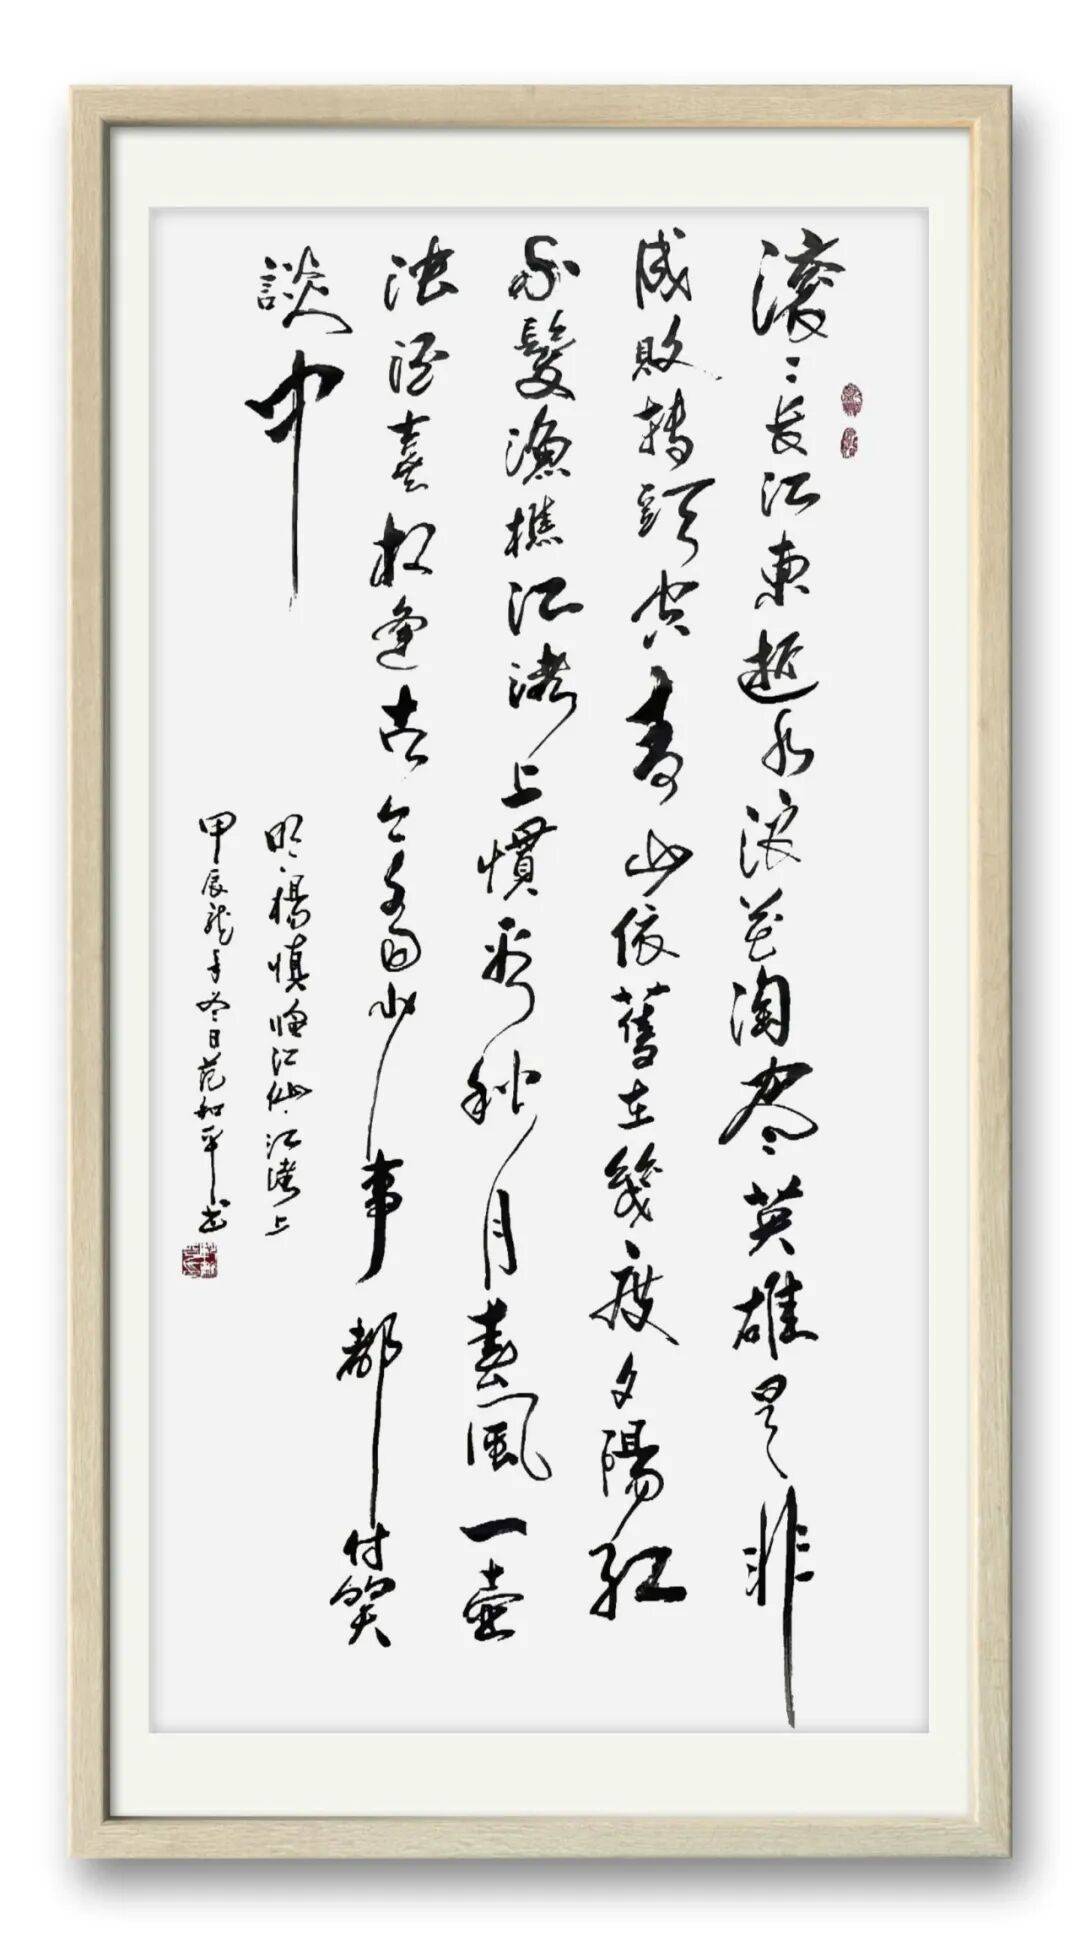 滚滚長江東逝水浪花淘尽英雄是非
成敗轉頭空青山依舊在幾度夕陽紅
白髮漁樵江渚上慣看秋月春風一壺
浊酒喜相逢古今多少事都付笑
談中
明楊慎臨江仙江渚上
甲辰龍年冬日范和平书